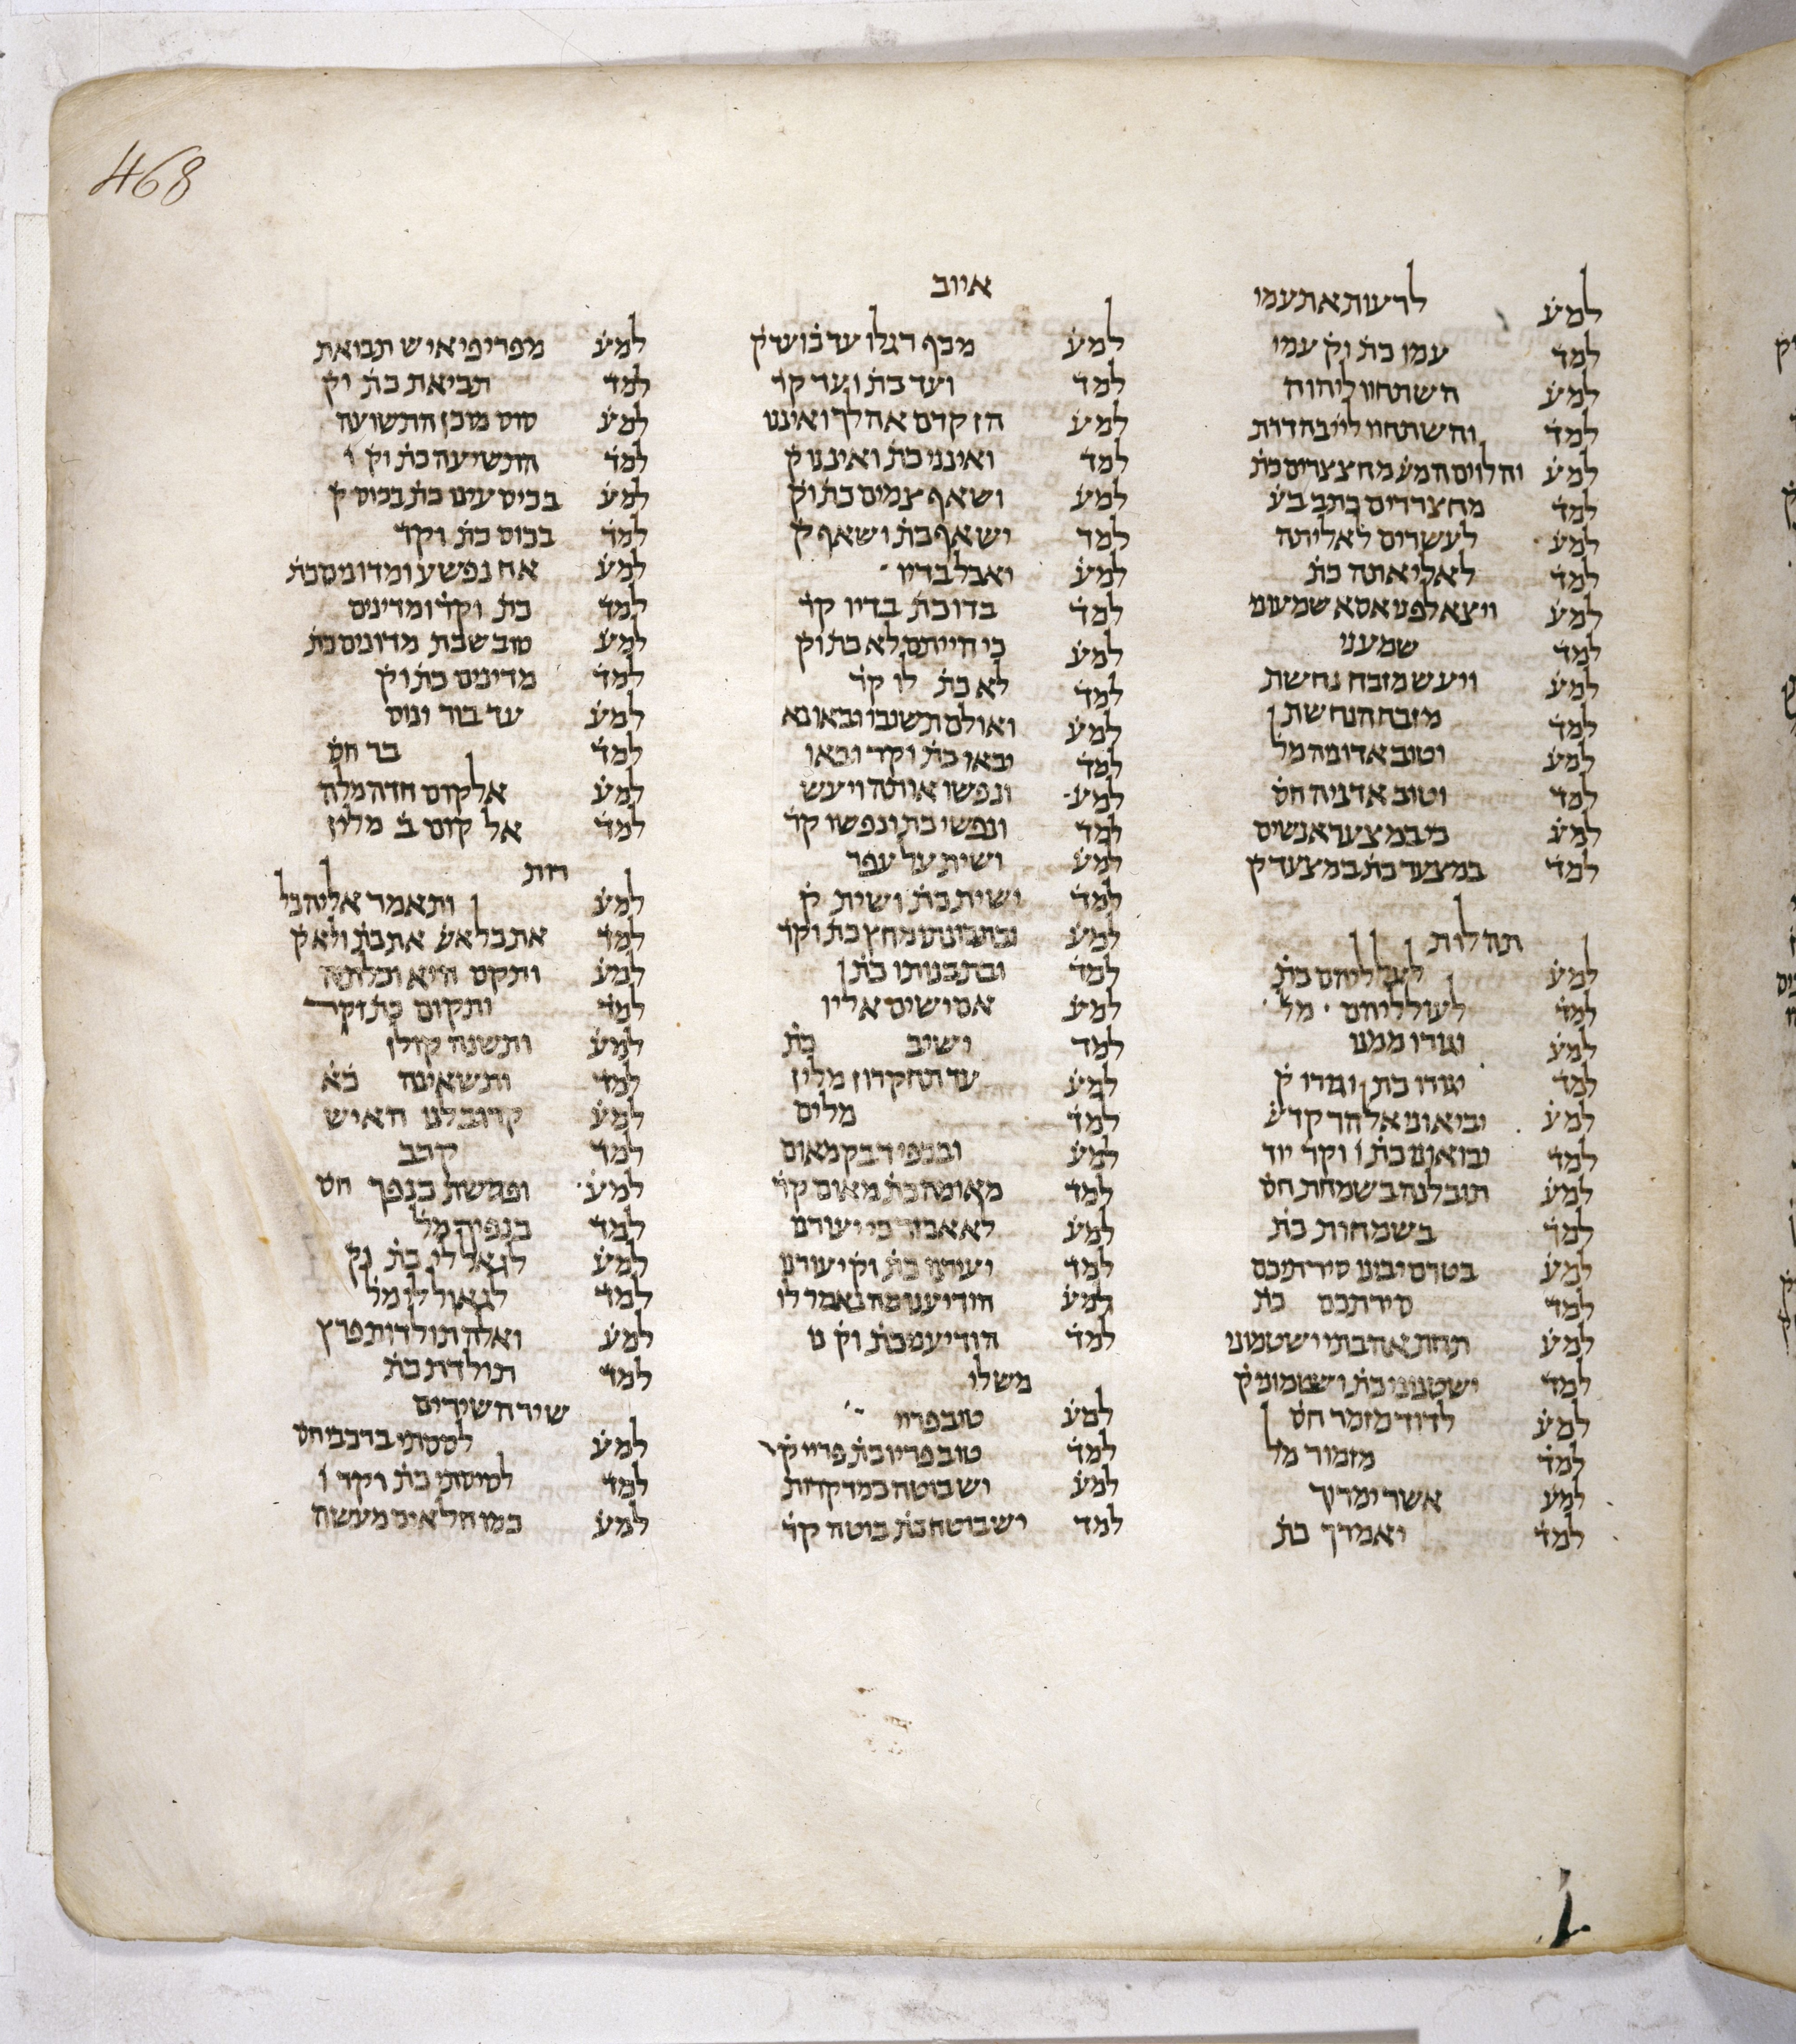 468
למע לרעות את עמי
למד עמו כת וק עמי
למע השתחוו ליהוה
למד והשתחוו לייי בהדרת
למע והלוים המע מחצצרים כת
למד מחצרדים כתב בע
למע לעשרים לאליתה
למד לאליאתה כת
למע ויצא לפני אסא שמעוני
למד שמעני
למע ויעש מזבח נחשת
למד מזבח הנחשת ן
למע וטוב אדוניה מל
למד וטוב אדניה חס
למע כי במצער אנשים
למד במצער כת במצעד ק
תהלות
למע לעולליהם כת
למד לעולליהם מל
למע יגודו ממנו
למד יגודו כת וגודו ק
למע יביאוני אל הר קדע
למד יבואוני כת ו וקד יוד
למע תובלנה בשמחת חס
למד בשמחות כת
למע בטרם יבינו סירתיכם
למד סירתכם כת
למע תחת אהבתי ישטמוני
למד ישטנוני כת וישטמוני ק
למע לדוד מזמר חס
למד מזמור מל
למע אשר ימרוך
למד יאמרך כת
איוב
למע מכף רגלו עד כו ועד ק
למד ועד כת ועד קד
למע הז קדם אהלך ואיננו
למד ואינני כת ואיננו ק
למע ושאף צמים כת וק
למד ישאף כת ושאף ק
למע יאכל בדיו
למד בדו כת בדיו קד
למע כי חייתם לא כת וק
למד לא כת לו קד
למע ואולם תשובו ובאו נא
למד יבאו כת וקד ובאו
למע ונפשו אותה ויעש
למד ונפשי כת ונפשו קד
למע ושית על עפר
למד ישית כת ושית ק
למע ובתבונתו מחץ כת וקד
למד ובתבנותו כת ן
למע אם ישים אליו
למד ישיב כת
למע עד תחקרון מלין
למד מלים
למע ובכפי דבק מאום
למד מאומה כת מאום קד
למע לא אכזר כי יעורנו
למד יעירנו כת וק יעורנו
למע הודיענו מה נאמר לו
למד הודיענו כת וק נו
משלי
למע טוב פריי
למד טוב פריו כת פריי ק
למע יש בוטה כמדקרות
למד יש בוטח כת בוטה קד
למע מפרי פי איש תבואת
למד תביאת כת וק
למע סוס מוכן התשועה
למד התשיעה כת וק ו
למע בכיס עינו כת בכוס ק
למד בכוס כת וקד
למע אח נפשע ומדונים כת
למד כת וקד ומדינים
למע טוב שבת מדונים כת
למד מדינים כת וק
למע עד בור ינוס
למד בר חס
למע אלקום חדה מלה
למד אל קום ב מלין
רות
למע ותאמר אליה כל
למד את כל אע את כת ולא ק
למע ותקם היא וכלתיה
למד ותקום כת וקר
למע ותשנה קולן
למד ותשאינה כא
למע קרוב לנו האיש
למד קרב
למע ופרשת כנפך חס
למד כנפיך מל
למע לגאל לי כת וק
למד לגאול לי מל
למע ואלה תולדות פרץ
למד תולדת כת
שיר השירים
למע לססתי ברכבי חס
למד לסיסתי כת וקד ו
למע כמו חלאים מעשה